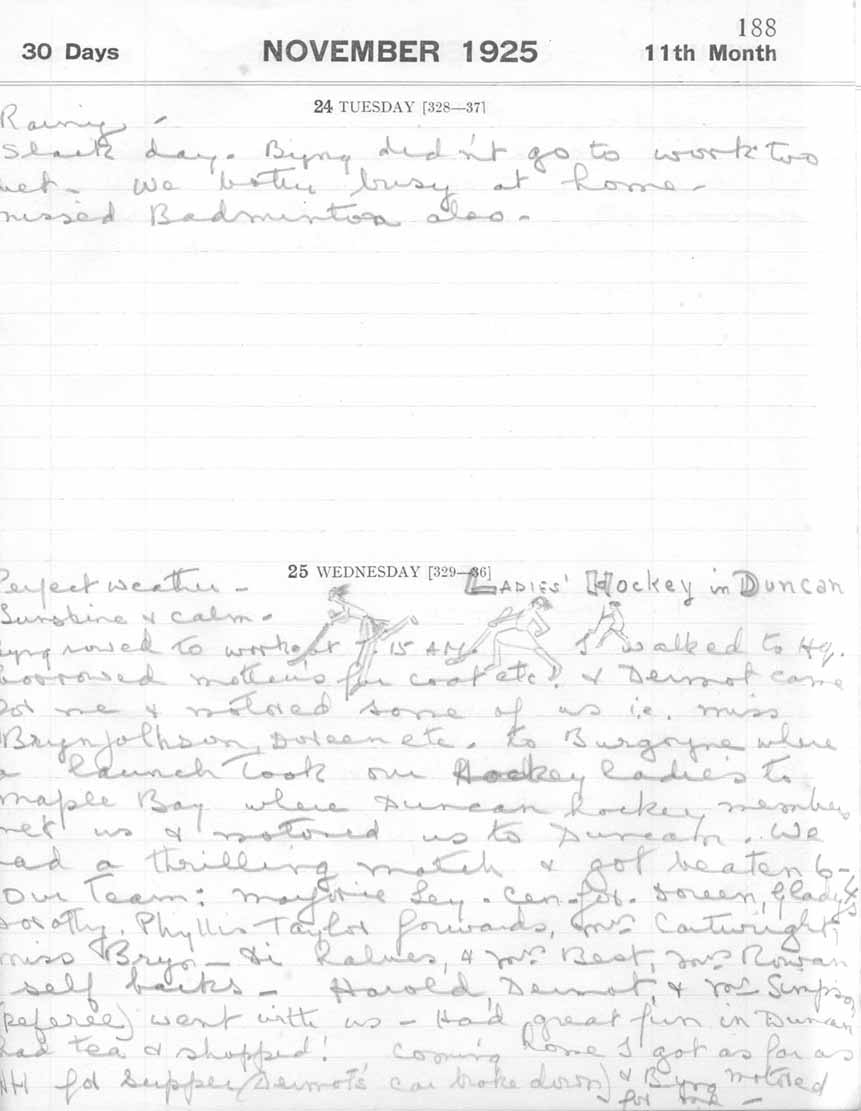 188
30 Days NOVEMBER 1925 11th Month
24 TUESDAY [328—37]
Rainy -
Slack day. Byng didn't go to work too
wet. We both busy at home -
missed Badminton also -
25 WEDNESDAY [329—36] LADIES' Hockey in Duncan
Perfect weather -
Sunshine & calm.
Byng rowed to work at 7 15 A.M. I walked to Hq.
borrowed mothers fur coat etc! & Dermot came
for me & motored some of us i.e. miss
Brynjolhson, Doreen etc. to Burgoyne where
a launch took our Hockey ladies to
Maple Bay where Duncan hockey members
met us & motored us to Duncan. We
had a thrilling match & got beaten 6-4
Our Team: Marjorie Ley. Cen. for. Doreen, Gladys
Dorothy, Phyllis Taylor forwards, Mrs Cartwright,
miss Bryn - Di & Mrs Best, Mrs Rowan
self backs - Harold, Dermot, & Mr Simpson
(referee) went with us - Had great fun in Duncan
had tea & shopped! Coming home I got as far as
HH for supper (Dermot's car broke down) & Byng motored
for me -